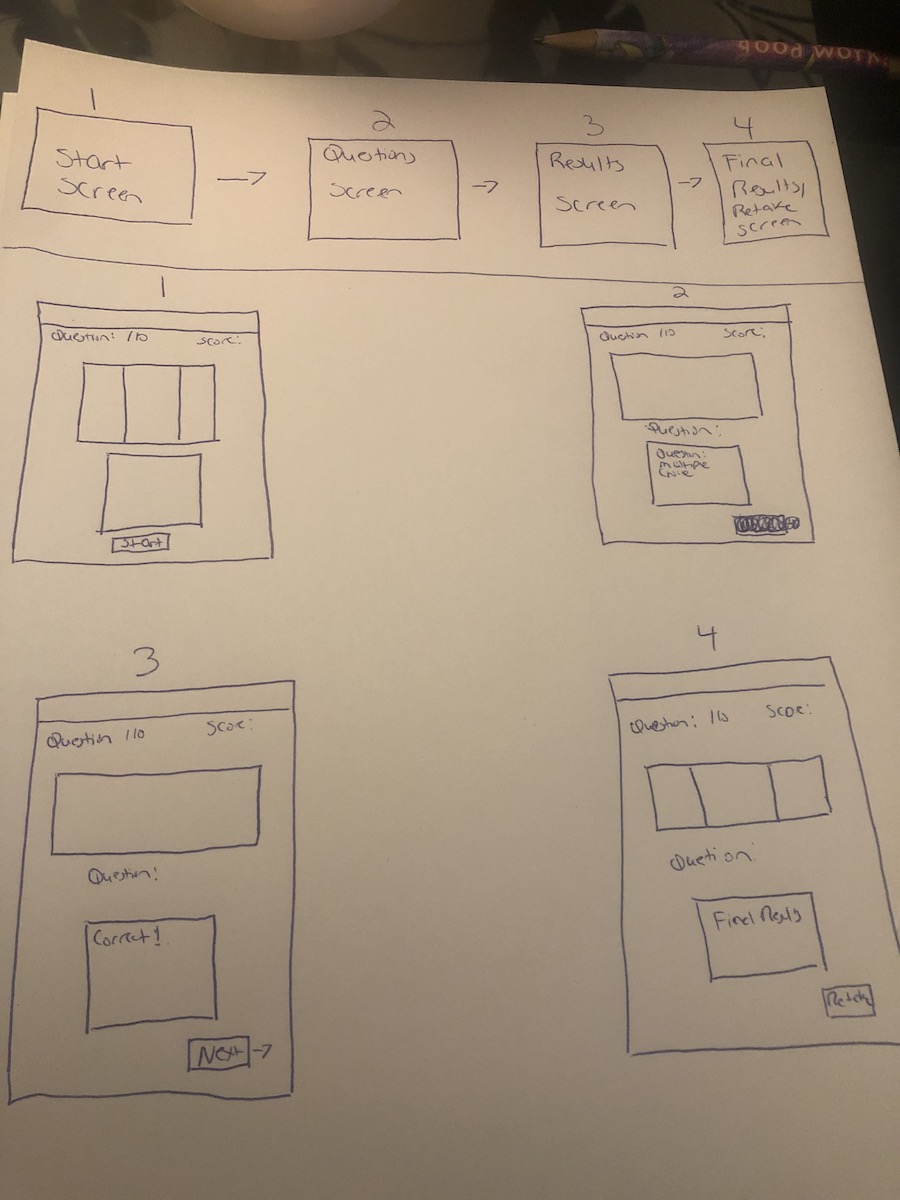 good work
1
2
3
4
Start
Screen
→
Questions
Screen
→
Results
Screen
→
Final
Results/
Retake
Screen
1
Question: /10
Score:
Start
2
Question /10
Score:
Question:
Question:
multiple
3
Question /10
Score:
Question:
Correct!
Next →
4
Question: /10
Score:
Quetion:
Final